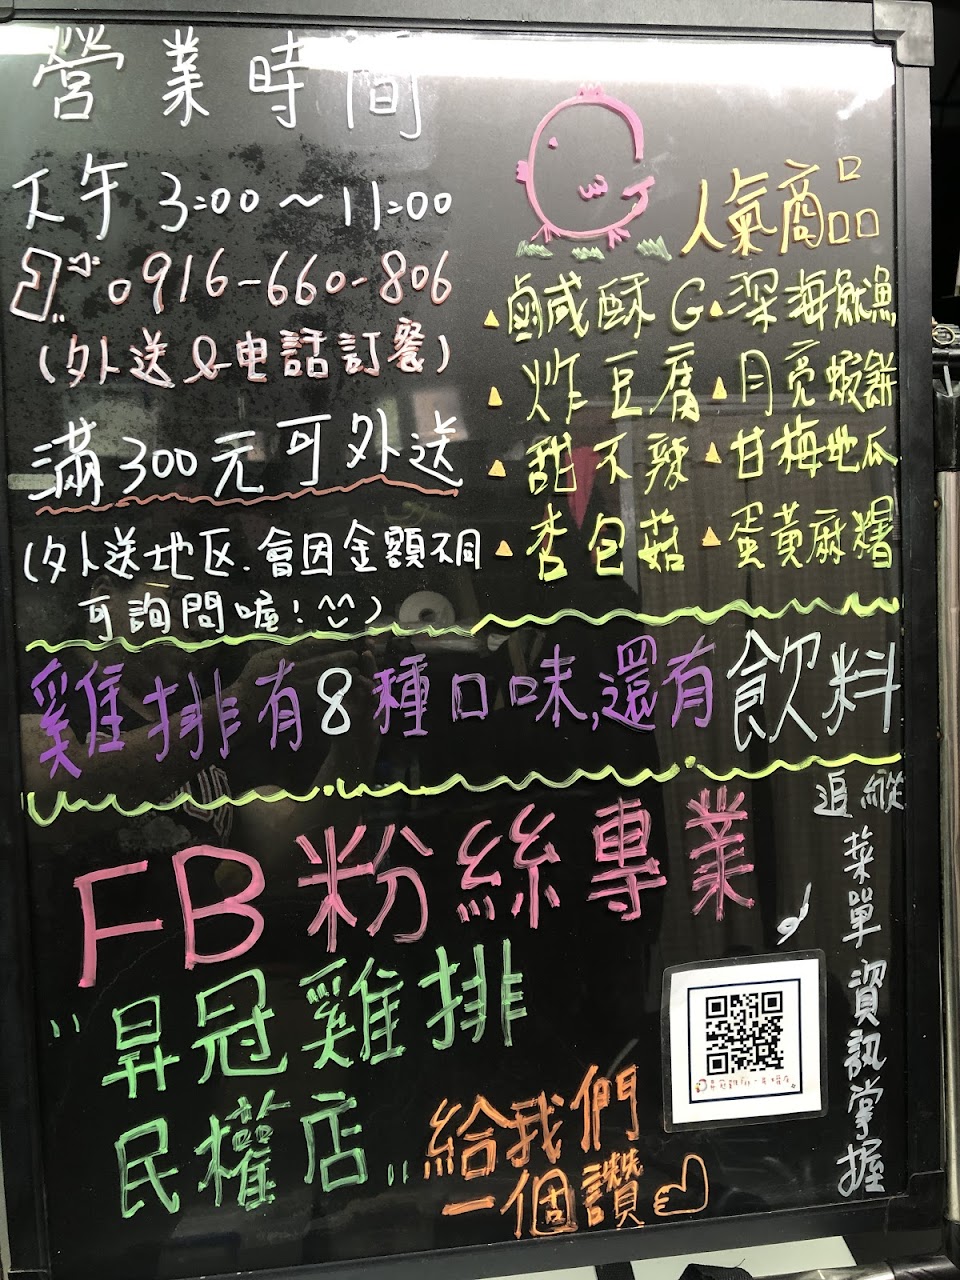 營業時間
下午 3:00～11:00
0916-660-806
(外送&电話訂餐)
滿300元可外送
(外送地区.會因金額不同
可詢問喔! ^^)
人氣商品
鹹酥G
深海魷魚
炸豆腐
月亮蝦餅
甜不辣
甘梅地瓜
杏包菇
蛋黃麻糬
雞排有8種口味,還有飲料
FB粉絲專業
"昇冠雞排
民權店"
給我們
一個讚
追縱
菜單資訊掌握